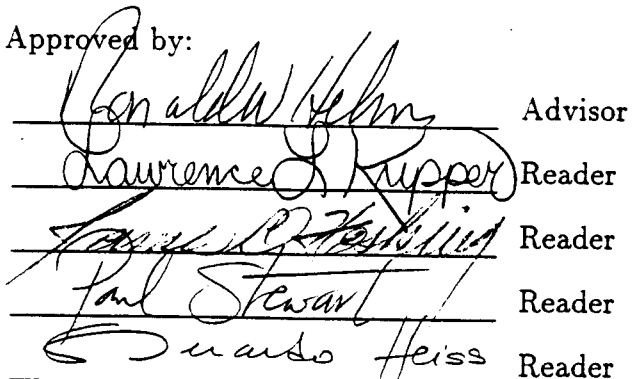 Approved by:
Ronald W Helms Advisor
Lawrence L Kupper Reader
Reader
Paul Stewart Reader
Gerardo Heiss Reader